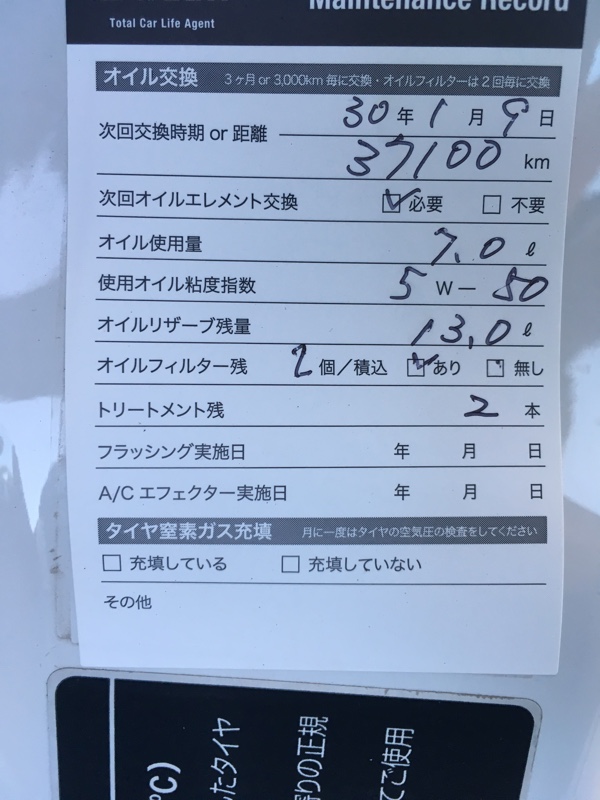 Maintenance Record
Total Car Life Agent
オイル交換 3ヶ月or 3,000km毎に交換・オイルフィルターは2回毎に交換
次回交換時期 or 距離 30年1月9日
37100 km
次回オイルエレメント交換 ☑必要 □不要
オイル使用量 7.0 ℓ
使用オイル粘度指数 5 W－50
オイルリザーブ残量 13.0 ℓ
オイルフィルター残 2個／積込 ☑あり □無し
トリートメント残 2 本
フラッシング実施日 年 月 日
A/C エフェクター実施日 年 月 日
タイヤ窒素ガス充填 月に一度はタイヤの空気圧の検査をしてください
□ 充填している □ 充填していない
その他
℃)
たタイヤ
りの正規
てご使用